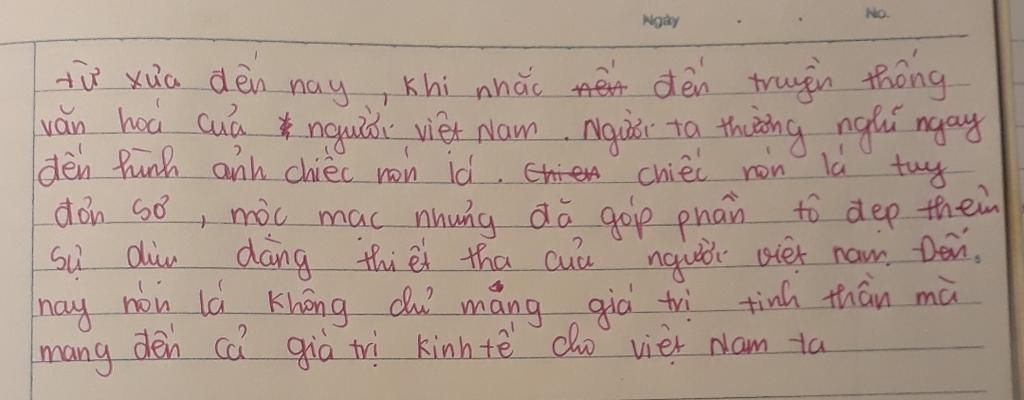 Ngày . . No.
từ xưa đến nay, khi nhắc nến đến truyền thống
văn hoá của người việt Nam. Người ta thường nghĩ ngay
đến hình ảnh chiếc nón lá. Chien chiếc nón lá tuy
đơn sơ, mộc mạc nhưng đã góp phần tô đẹp thêm
sự dịu dàng thiết tha của người việt nam. Đến
nay nón lá không chỉ mang giá trị tinh thần mà
mang đến cả giá trị kinh tế cho việt Nam ta